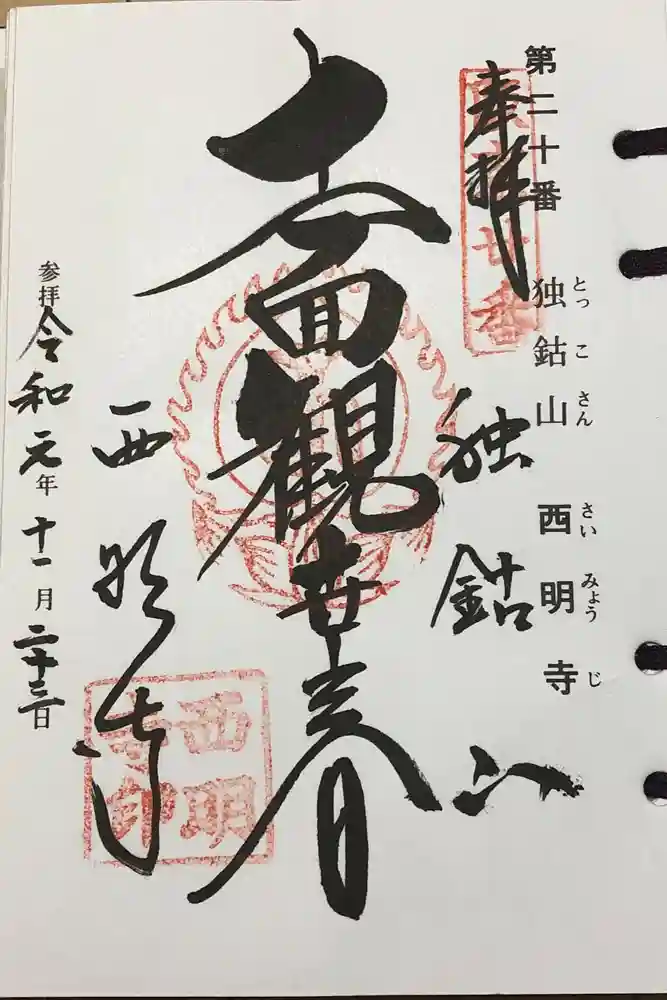 第二十番 独鈷山 西明寺
とっこさん さいみょうじ
奉拝
廿番
独鈷山
十一面観世音
西明寺
西明寺印
参拝 令和元年十一月二十三日